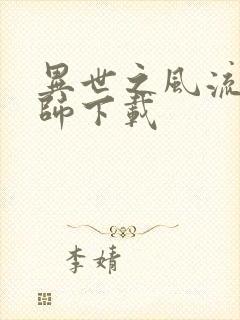 異世之風流
師下載
李婧